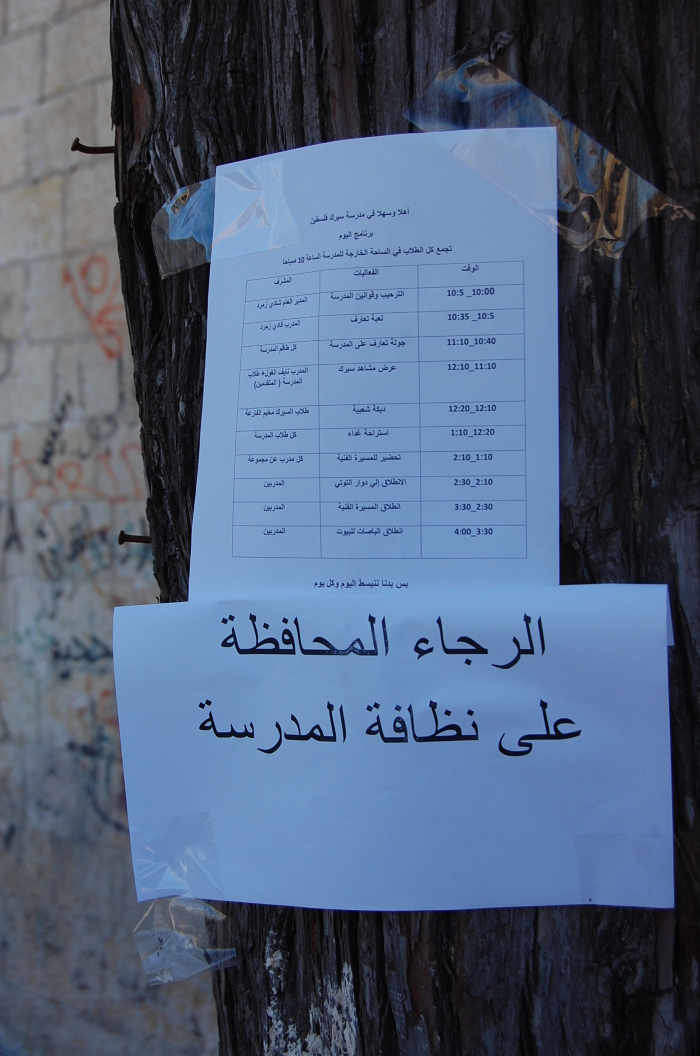 أهلا وسهلا في مدرسة سيرك فلسطين
برنامج اليوم
تجمع كل الطلاب في الساحة الخارجة للمدرسة الساعة 10 صباحا
الوقت الفعاليات المشرف
10:00_ 10:5 الترحيب وقوانين المدرسة المدير العام شادي زمرد
10:5_ 10:35 لعبة تعارف المدرب فادي زمرد
10:40_11:10 جولة تعارف على المدرسة كل طاقم المدرسة
11:10_12:10 عرض مشاهد سيرك المدرب نايف الغول+ طلاب
المدرسة ( المتقدمين)
12:10_12:20 دبكة شعبية طلاب السيرك مخيم الفارعة
12:20_1:10 استراحة غداء كل طلاب المدرسة
1:10_2:10 تحضير للمسيرة الفنية كل مدرب عن مجموعة
2:10_2:30 الانطلاق إلي دوار التوتي المدربين
2:30_3:30 انطلاق المسيرة الفنية المدربين
3:30_4:00 انطلاق الباصات للبيوت المدربين
بس بدنا ننبسط اليوم وكل يوم
الرجاء المحافظة
على نظافة المدرسة